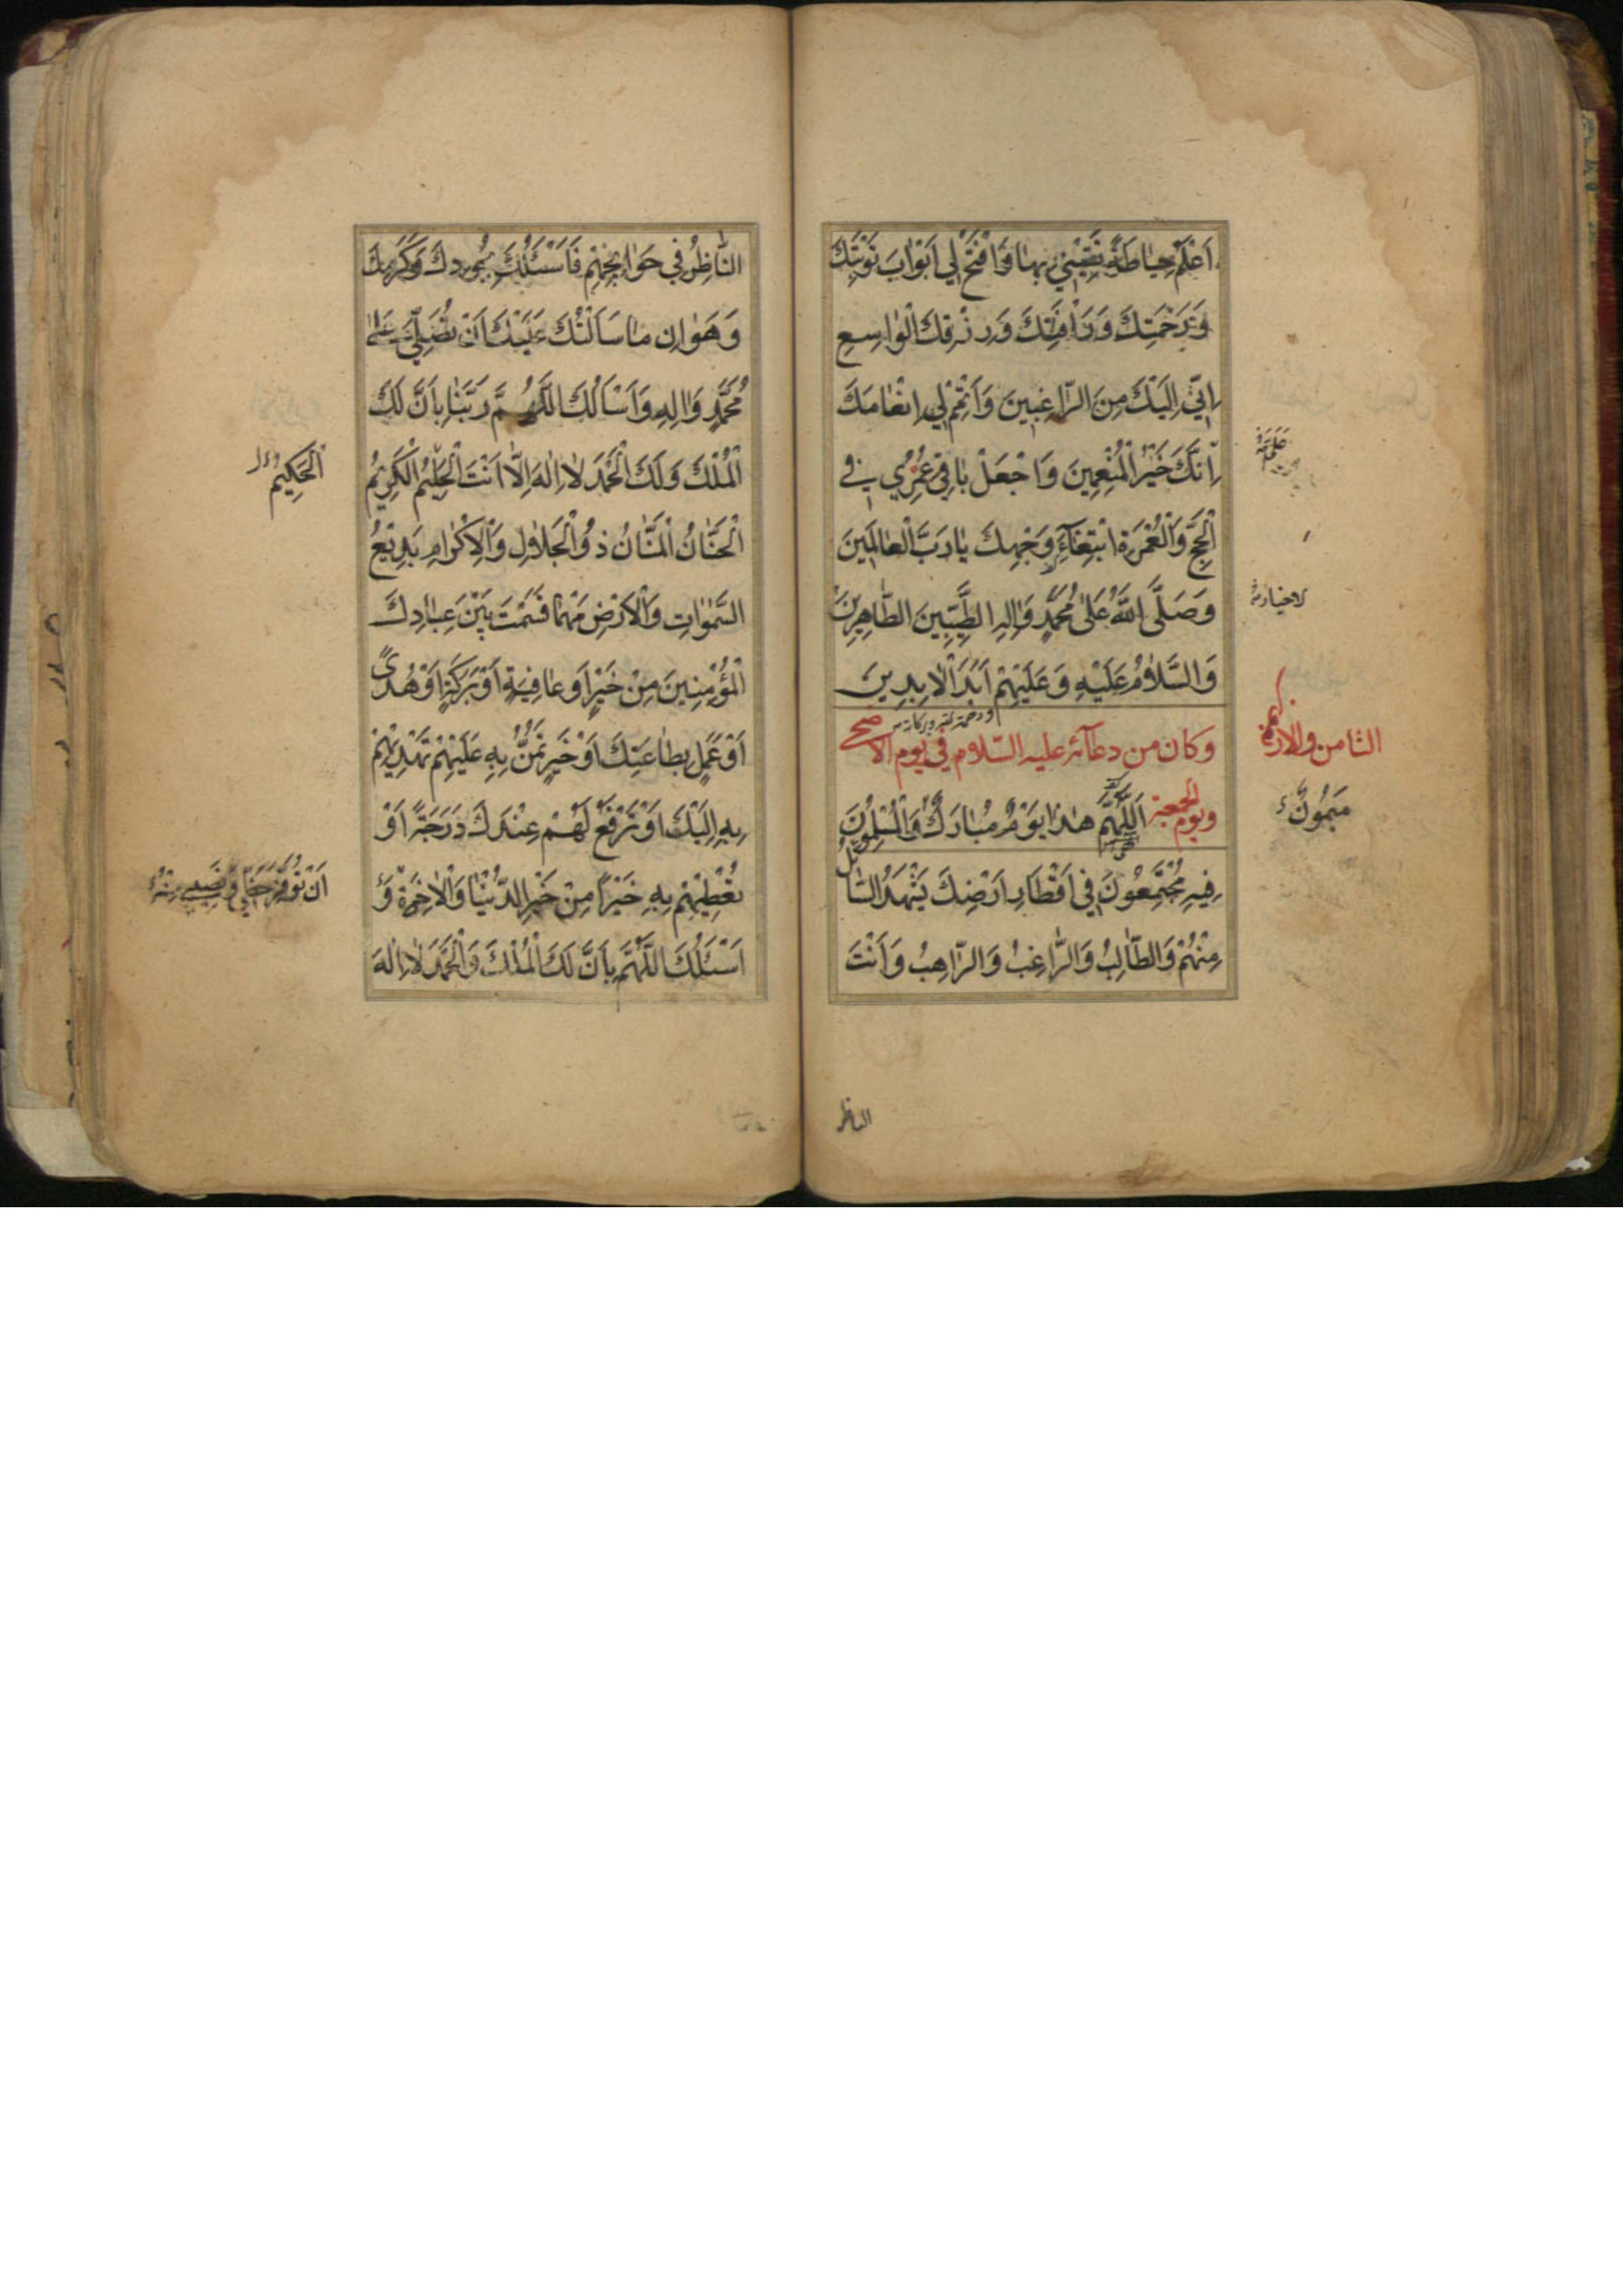 اَعْلَمُ حِيَاطَةً تَقِيْنِي بِهَا وَافْتَحْ لِي اَبْوَابَ تَوْبَتِكَ
وَرَحْمَتِكَ وَرَأْفَتِكَ وَرِزْقِكَ الْوَاسِعِ
اِنِّي اِلَيْكَ مِنَ الرَّاغِبِينَ وَاَتْمِمْ لِي اِنْعَامَكَ
اِنَّكَ خَيْرُ الْمُنْعِمِينَ وَاجْعَلْ بَاقِيَ عُمُرِي فِي
الْحَجِّ وَالْعُمْرَةِ ابْتِغَاءَ وَجْهِكَ يَا رَبَّ الْعَالَمِينَ
وَصَلَّى اللّٰهُ عَلٰى مُحَمَّدٍ وَاٰلِهِ الطَّيِّبِينَ الطَّاهِرِينَ
وَالسَّلَامُ عَلَيْهِ وَعَلَيْهِمْ اَبَدَ الْاٰبِدِينَ
وكان من دعائه عليه السّلام في يوم الاضحى
ويوم الجمعة اَللّٰهُمَّ هٰذَا يَوْمٌ مُبَارَكٌ وَالْمُسْلِمُونَ
فِيهِ مُجْتَمِعُونَ فِي اَقْطَارِ اَرْضِكَ يَشْهَدُ السَّائِلُ
مِنْهُمْ وَالطَّالِبُ وَالرَّاغِبُ وَالرَّاهِبُ وَاَنْتَ
الثامن والاربعون
مَيْمُونٌ
الناظر
النَّاظِرُ فِي حَوَائِجِهِمْ فَاَسْئَلُكَ بِجُودِكَ وَكَرَمِكَ
وَهَوَانِ مَا سَاَلْتُكَ عَلَيْكَ اَنْ تُصَلِّيَ عَلٰى
مُحَمَّدٍ وَاٰلِهِ وَاَسْاَلُكَ اللّٰهُمَّ رَبَّنَا بِاَنَّ لَكَ
الْمُلْكَ وَلَكَ الْحَمْدَ لَا اِلٰهَ اِلَّا اَنْتَ الْحَلِيمُ الْكَرِيمُ
الْحَنَّانُ الْمَنَّانُ ذُو الْجَلَالِ وَالْاِكْرَامِ بَدِيعُ
السَّمٰوَاتِ وَالْاَرْضِ مَهْمَا قَسَمْتَ بَيْنَ عِبَادِكَ
الْمُؤْمِنِينَ مِنْ خَيْرٍ اَوْ عَافِيَةٍ اَوْ بَرَكَةٍ اَوْ هُدًى
اَوْ عَمَلٍ بِطَاعَتِكَ اَوْ خَيْرٍ تَمُنُّ بِهِ عَلَيْهِمْ تَهْدِيهِمْ
بِهِ اِلَيْكَ اَوْ تَرْفَعُ لَهُمْ عِنْدَكَ دَرَجَةً اَوْ
تُعْطِيهِمْ بِهِ خَيْرًا مِنْ خَيْرِ الدُّنْيَا وَالْاٰخِرَةِ وَ
اَسْئَلُكَ اللّٰهُمَّ بِاَنَّ لَكَ الْمُلْكَ وَالْحَمْدَ لَا اِلٰهَ
الْحَكِيمُ
اَنْ تُوَفِّرَ حَظِّي وَنَصِيبِي مِنْهُ